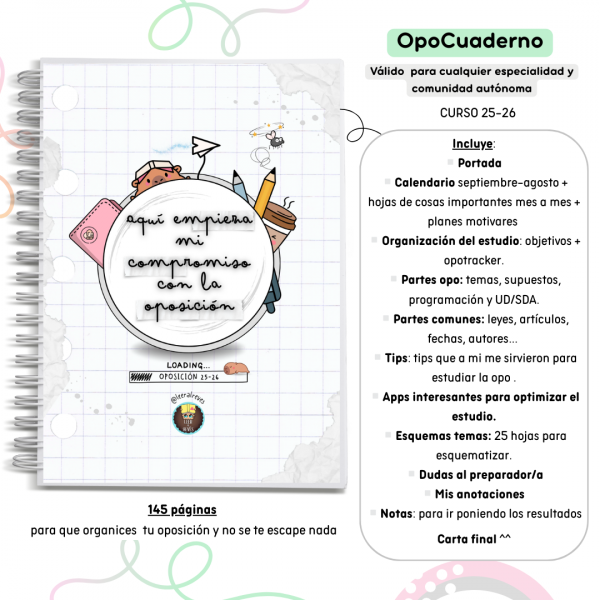 OpoCuaderno
Válido para cualquier especialidad y
comunidad autónoma
CURSO 25-26
Incluye:
Portada
Calendario septiembre-agosto +
hojas de cosas importantes mes a mes +
planes motivares
Organización del estudio: objetivos +
opotracker.
Partes opo: temas, supuestos,
programación y UD/SDA.
Partes comunes: leyes, artículos,
fechas, autores...
Tips: tips que a mi me sirvieron para
estudiar la opo .
Apps interesantes para optimizar el
estudio.
Esquemas temas: 25 hojas para
esquematizar.
Dudas al preparador/a
Mis anotaciones
Notas: para ir poniendo los resultados
Carta final ^^
aquí empieza
mi
compromiso
con la
oposición
LOADING...
OPOSICIÓN 25-26
@leeralreves
145 páginas
para que organices tu oposición y no se te escape nada